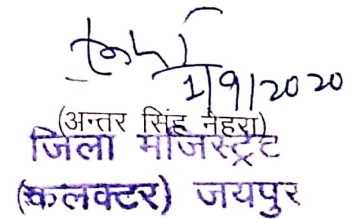 1/9/2020
(अन्तर सिंह नेहरा)
जिला मजिस्ट्रेट
(कलक्टर) जयपुर